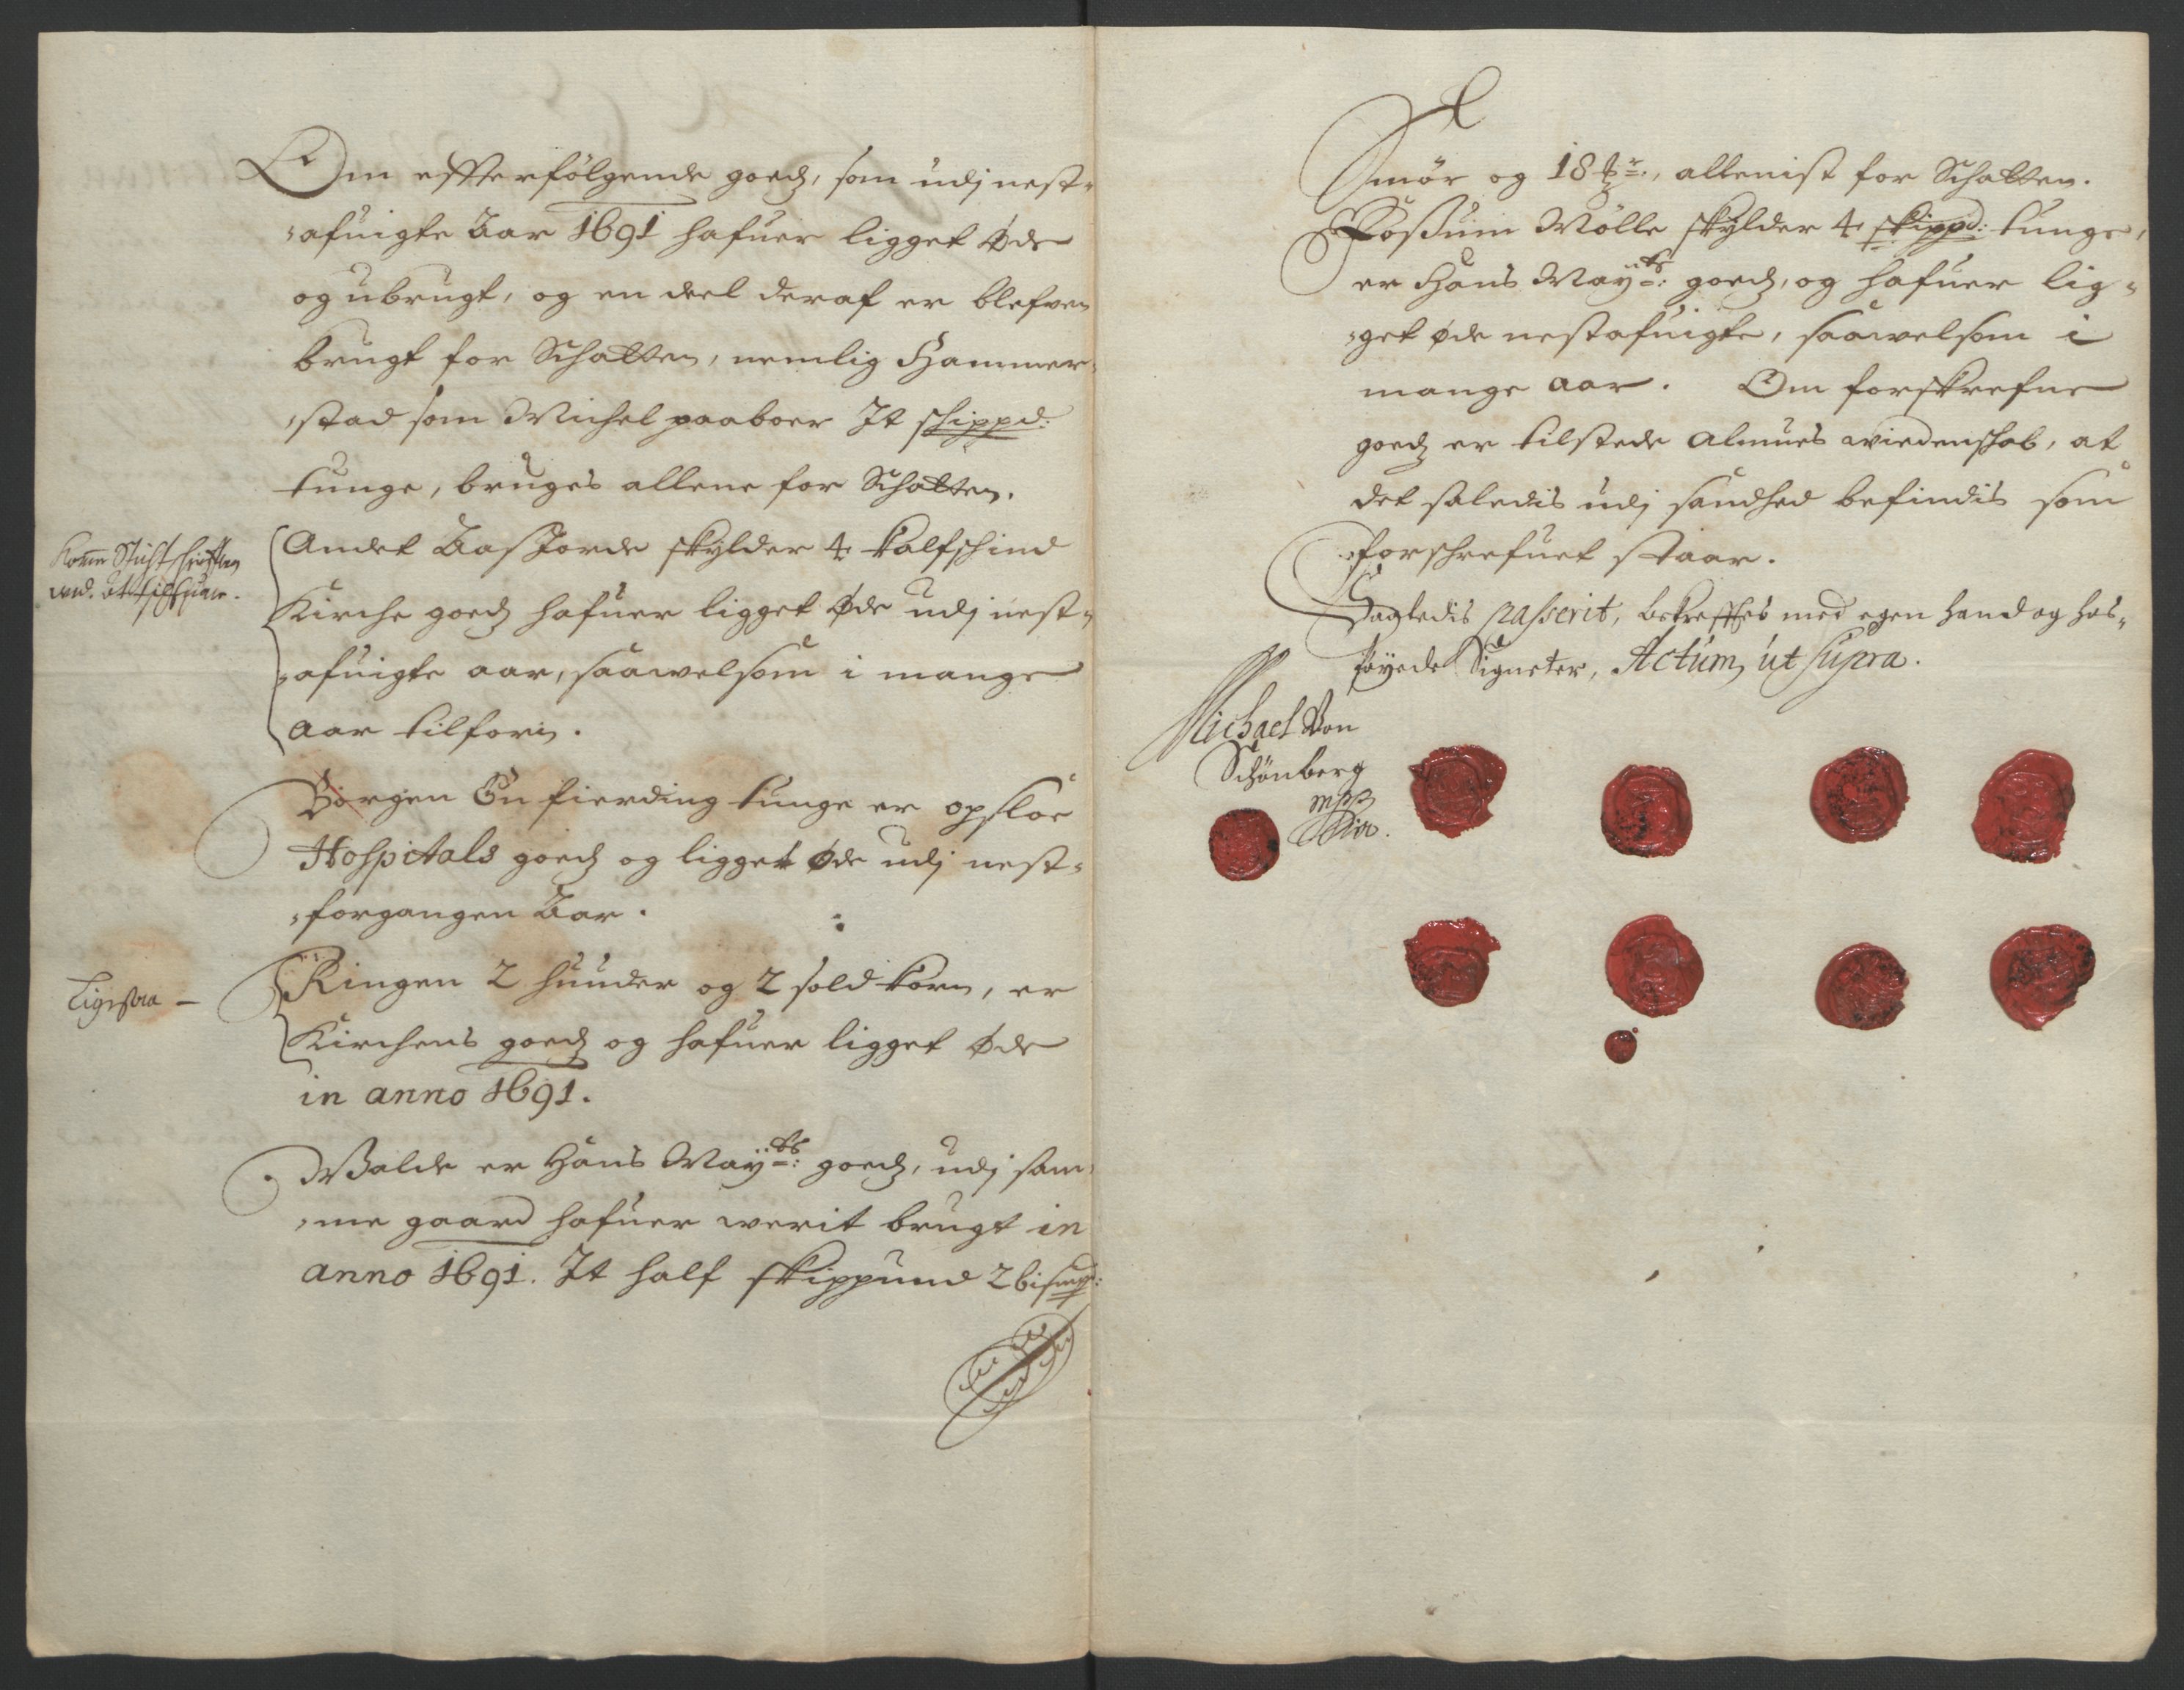 Om effterfölgende goedz, som udj nest-
afuigte Aar 1691 hafuer ligget øde
og ubrugt, og en deel deraf er blefven
brugt for Schatten, nemlig Hammer-
stad som Michel paaboer It schippd:
tunge, bruges allene for Schatten.
Andet Aasjorde skylder 4 Kalfschind
Kirche goedz hafuer ligget øde udj nest-
afuigte aar, saawelsom i mange
aar tilforn.
Borgen En fierding tunge er opsloe
Hospitals goedz og ligget øde udj nest-
forgangen Aar.
Ligesaa -
Ringen 2 huuder og 2 sold korn, er
Kirchens goedz og hafuer ligget øde
in anno 1691.
Walde er Hans Mayts: goedz, udj sam-
me gaard hafuer werit brugt in
anno 1691. It half skippund 2 bismpd:
Smör og 18 ..., allenist for Schatten.
Fossum Mölle skylder 4 skippd: tunge,
er Hans Mayts: goedz, og hafuer lig-
get øde nestafuigte, saawelsom i
mange aar. Om forskrefne
goedz er tilstede Almues widenskab, at
det saledis udj sandhed befindis som
forschrefuet staar.
Sagledis passerit, bekrefftes med egen hand og hos-
föyede Signeter, Actum ut supra.
Michael Von
Schönberg
mppria.